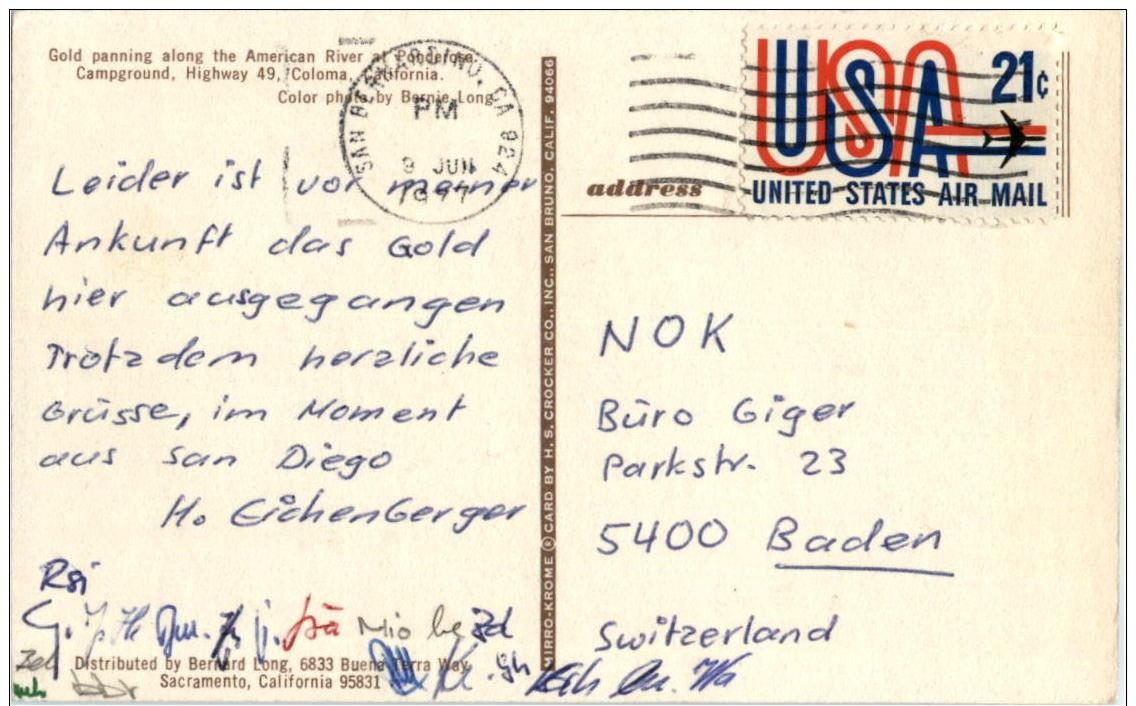 Gold panning along the American River at Ponderosa
Campground, Highway 49, Coloma, California.
Color photo by Bernie Long
SAN BERNARDINO, CA 924
PM
9 JUN
1977
USA
21¢
UNITED STATES AIR MAIL
address
Leider ist vor meiner
Ankunft das Gold
hier ausgegangen
Trotzdem herzliche
Grüsse, im Moment
aus San Diego
H. Eichenberger
MIRRO-KROME ® CARD BY H. S. CROCKER CO., INC., SAN BRUNO, CALIF. 94066
NOK
Büro Giger
Parkstr. 23
5400 Baden
Switzerland
Rsi
Mio he Zd
Zel
Distributed by Bernard Long, 6833 Buena Terra Way
Sacramento, California 95831